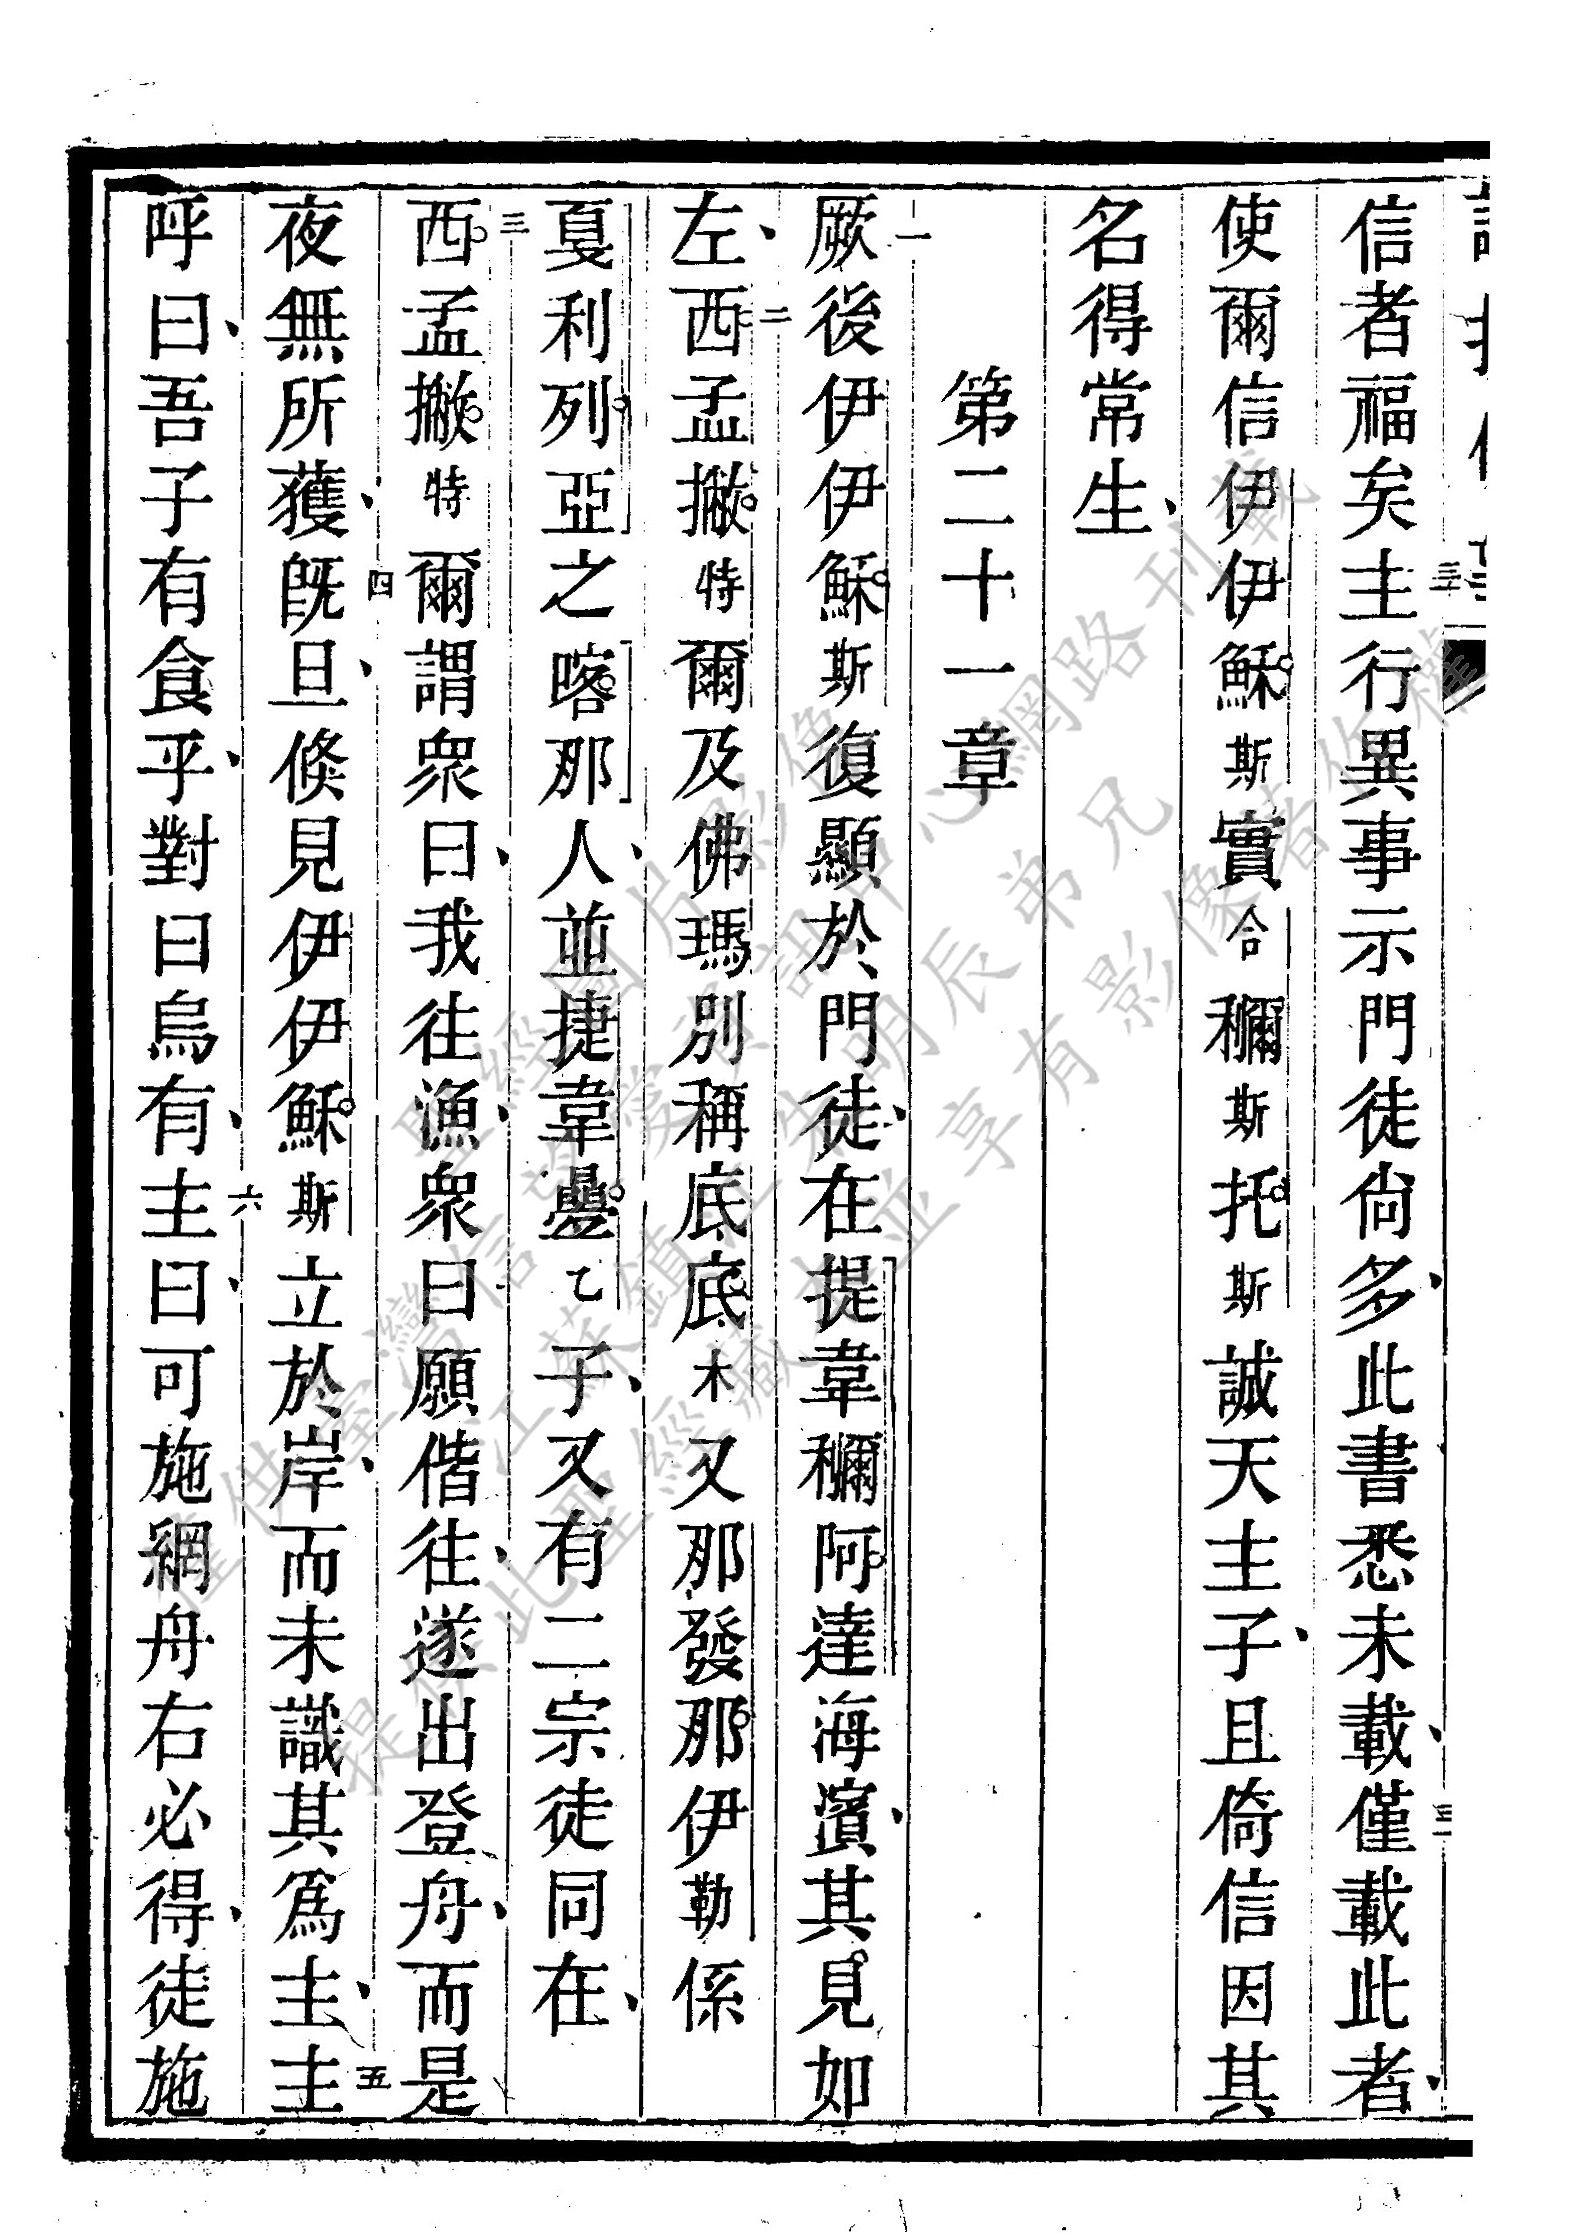 信者福矣三十主行異事示門徒尙多、此書悉未載、三一僅載此者、
使爾信伊伊穌斯實合穪斯托斯誠天主子、且倚信因其
名得常生、
第二十一章
一厥後伊伊穌斯復顯於門徒、在提韋穪阿達海濱、其見如
左、二西孟撇特爾及佛瑪別稱底底木又那發那伊勒係
戛利列亞之喀那人、並捷韋疊乙子、又有二宗徒同在、
三西孟撇特爾謂衆曰、我往漁、衆曰願偕往、遂出登舟、而是
夜無所獲、四旣旦、倏見伊伊穌斯立於岸、而未識其爲主、五主
呼曰、吾子有食乎、對曰烏有、六主曰、可施網舟右必得、徒施
提供臺灣信望愛資訊中心網路刊載